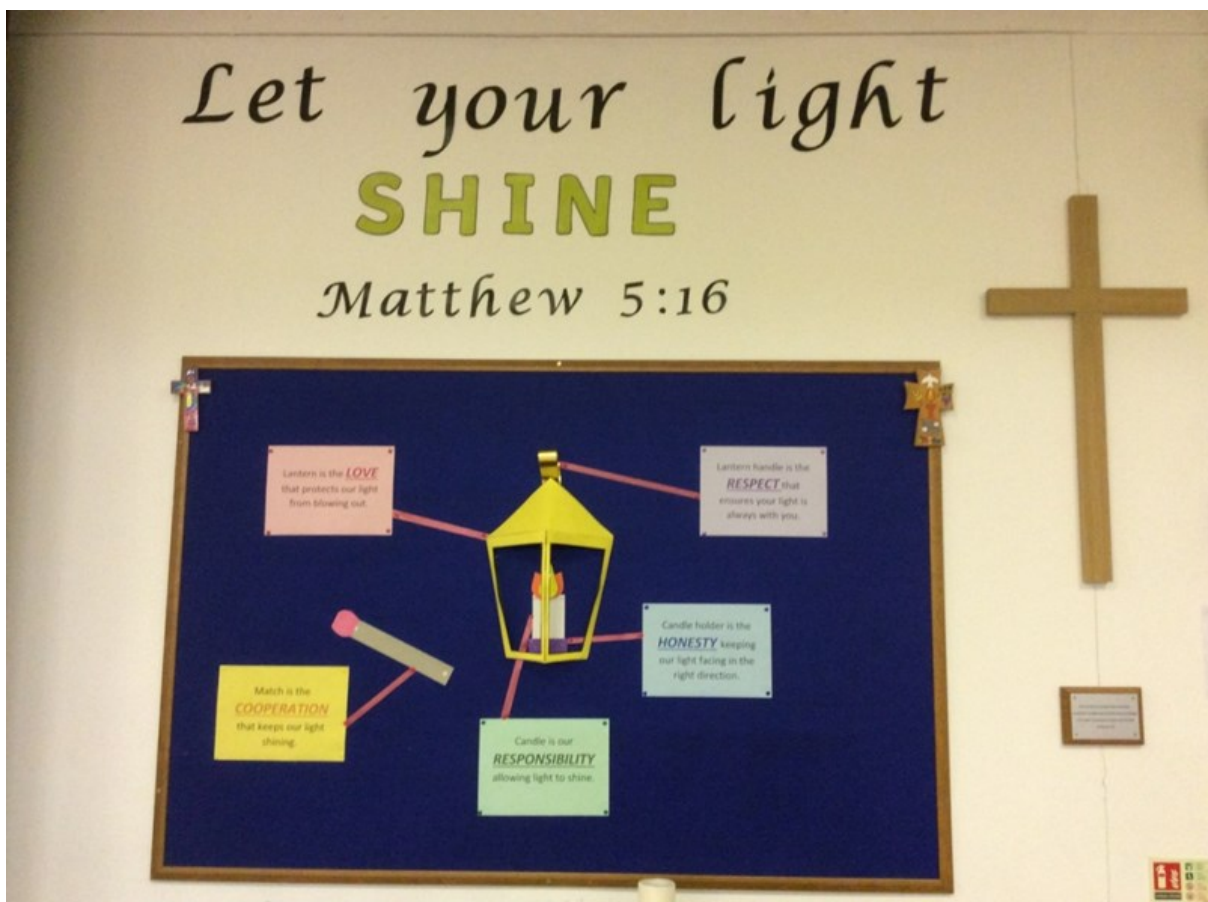 Let your light
SHINE
Matthew 5:16
Lantern is the LOVE
that protects our light
from blowing out.
Lantern handle is the
RESPECT that
ensures your light is
always with you.
Candle holder is the
HONESTY keeping
our light facing in the
right direction.
Match is the
COOPERATION
that keeps our light
shining.
Candle is our
RESPONSIBILITY
allowing light to shine.